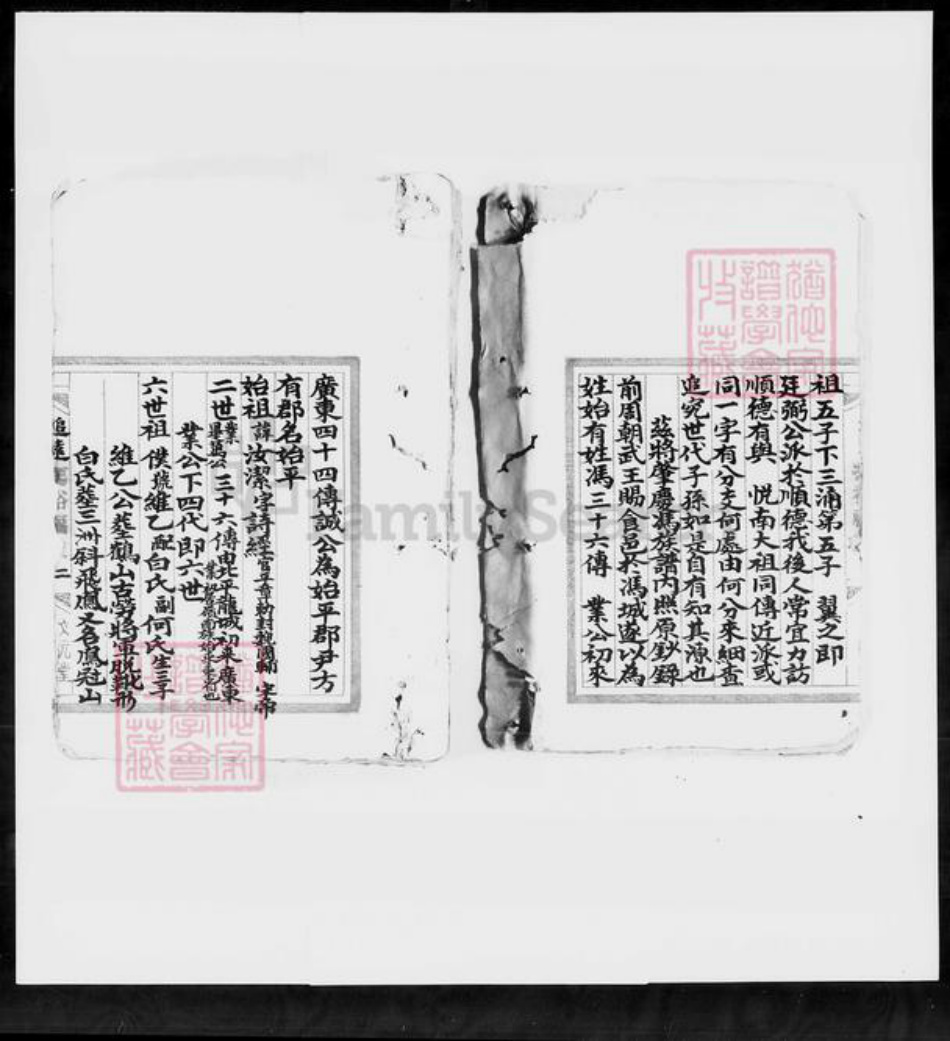 祖五子下三浦第五子 翼之即
廷弼公派於順德我後人常宜力訪
順德有與 悦南大祖同傳近派或
同一字有分支何處由何分來細查
追究世代子孫如是自有知其源也
茲將肇慶馮族譜內照原鈔錄
前周朝武王賜食邑於馮城遂以為
姓始有姓馮三十六傳 業公初來
廣東四十四傳誠公為始平郡尹方
有郡名始平
始祖諱汝潔字詩經官
二世業三十六傳由北平龍城初來廣東
業公下四代即六世
六世祖僕號維乙配白氏副何氏生三子
維乙公葬鶴山古勞將軍脱靴形
白氏葬三洲斜飛鳳又名鳳冠山
追遠
二
猶他家譜學會收藏
猶他家譜學會收藏
FamilySearch